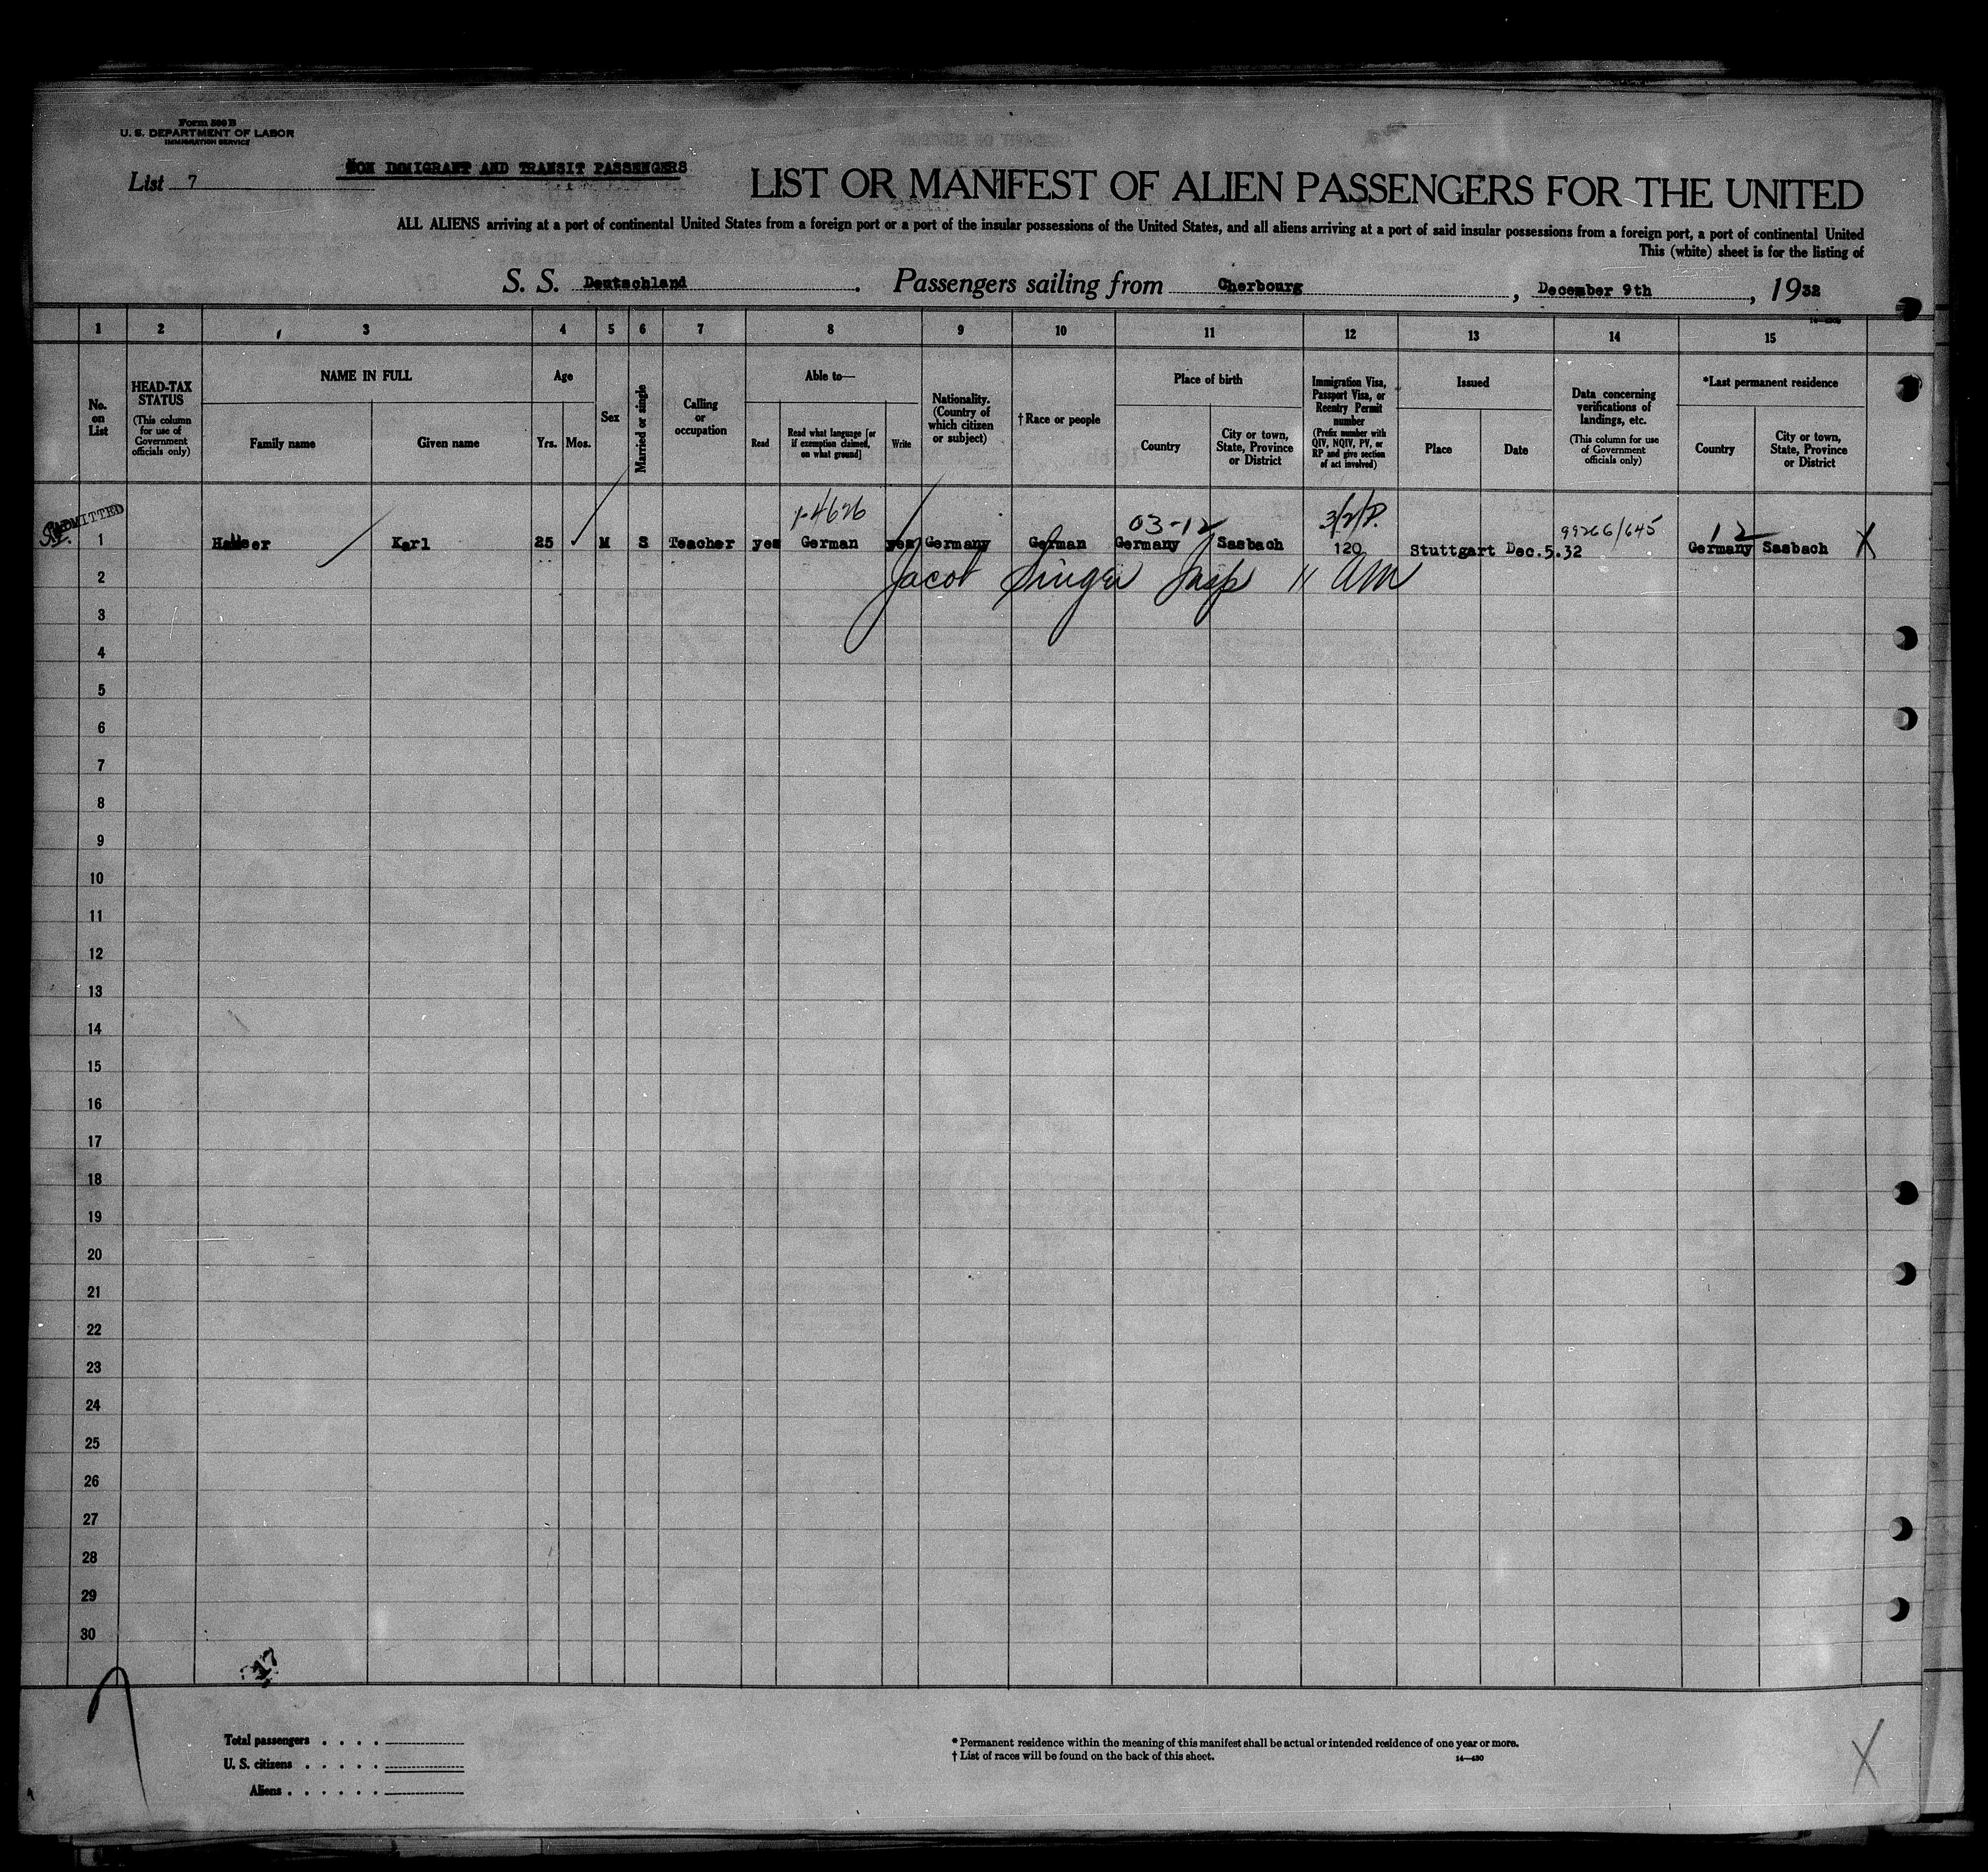 Form 500 B
U. S. DEPARTMENT OF LABOR
IMMIGRATION SERVICE
List 7
NON IMMIGRANT AND TRANSIT PASSENGERS
LIST OR MANIFEST OF ALIEN PASSENGERS FOR THE UNITED
ALL ALIENS arriving at a port of continental United States from a foreign port or a port of the insular possessions of the United States, and all aliens arriving at a port of said insular possessions from a foreign port, a port of continental United
This (white) sheet is for the listing of
S. S. Deutschland . Passengers sailing from Cherbourg , December 9th , 1932
1 2 3 4 5 6 7 8 9 10 11 12 13 14 15
No. on List
HEAD-TAX STATUS
(This column for use of Government officials only)
NAME IN FULL
Family name
Given name
Age
Yrs. Mos.
Sex
Married or single
Calling or occupation
Able to—
Read
Read what language [or if exemption claimed, on what ground]
Write
Nationality. (Country of which citizen or subject)
†Race or people
Place of birth
Country
City or town, State, Province or District
Immigration Visa, Passport Visa, or Reentry Permit number
(Prefix number with QIV, NQIV, PV, or RP and give section of act involved)
Issued
Place
Date
Data concerning verifications of landings, etc.
(This column for use of Government officials only)
*Last permanent residence
Country
City or town, State, Province or District
ADMITTED
1-4626 03-12 3/2/P. 99266/645 12
1 Karl 25 ✓ M S Teacher yes German yes Germany German Germany Sasbach 120 Stuttgart Dec.5.32 Germany Sasbach X
Jacob Singer Insp 11 AM
2
3
4
5
6
7
8
9
10
11
12
13
14
15
16
17
18
19
20
21
22
23
24
25
26
27
28
29
30
Total passengers . . . .
U. S. citizens . . . . .
Aliens . . . . . .
* Permanent residence within the meaning of this manifest shall be actual or intended residence of one year or more.
† List of races will be found on the back of this sheet.
14—430
X